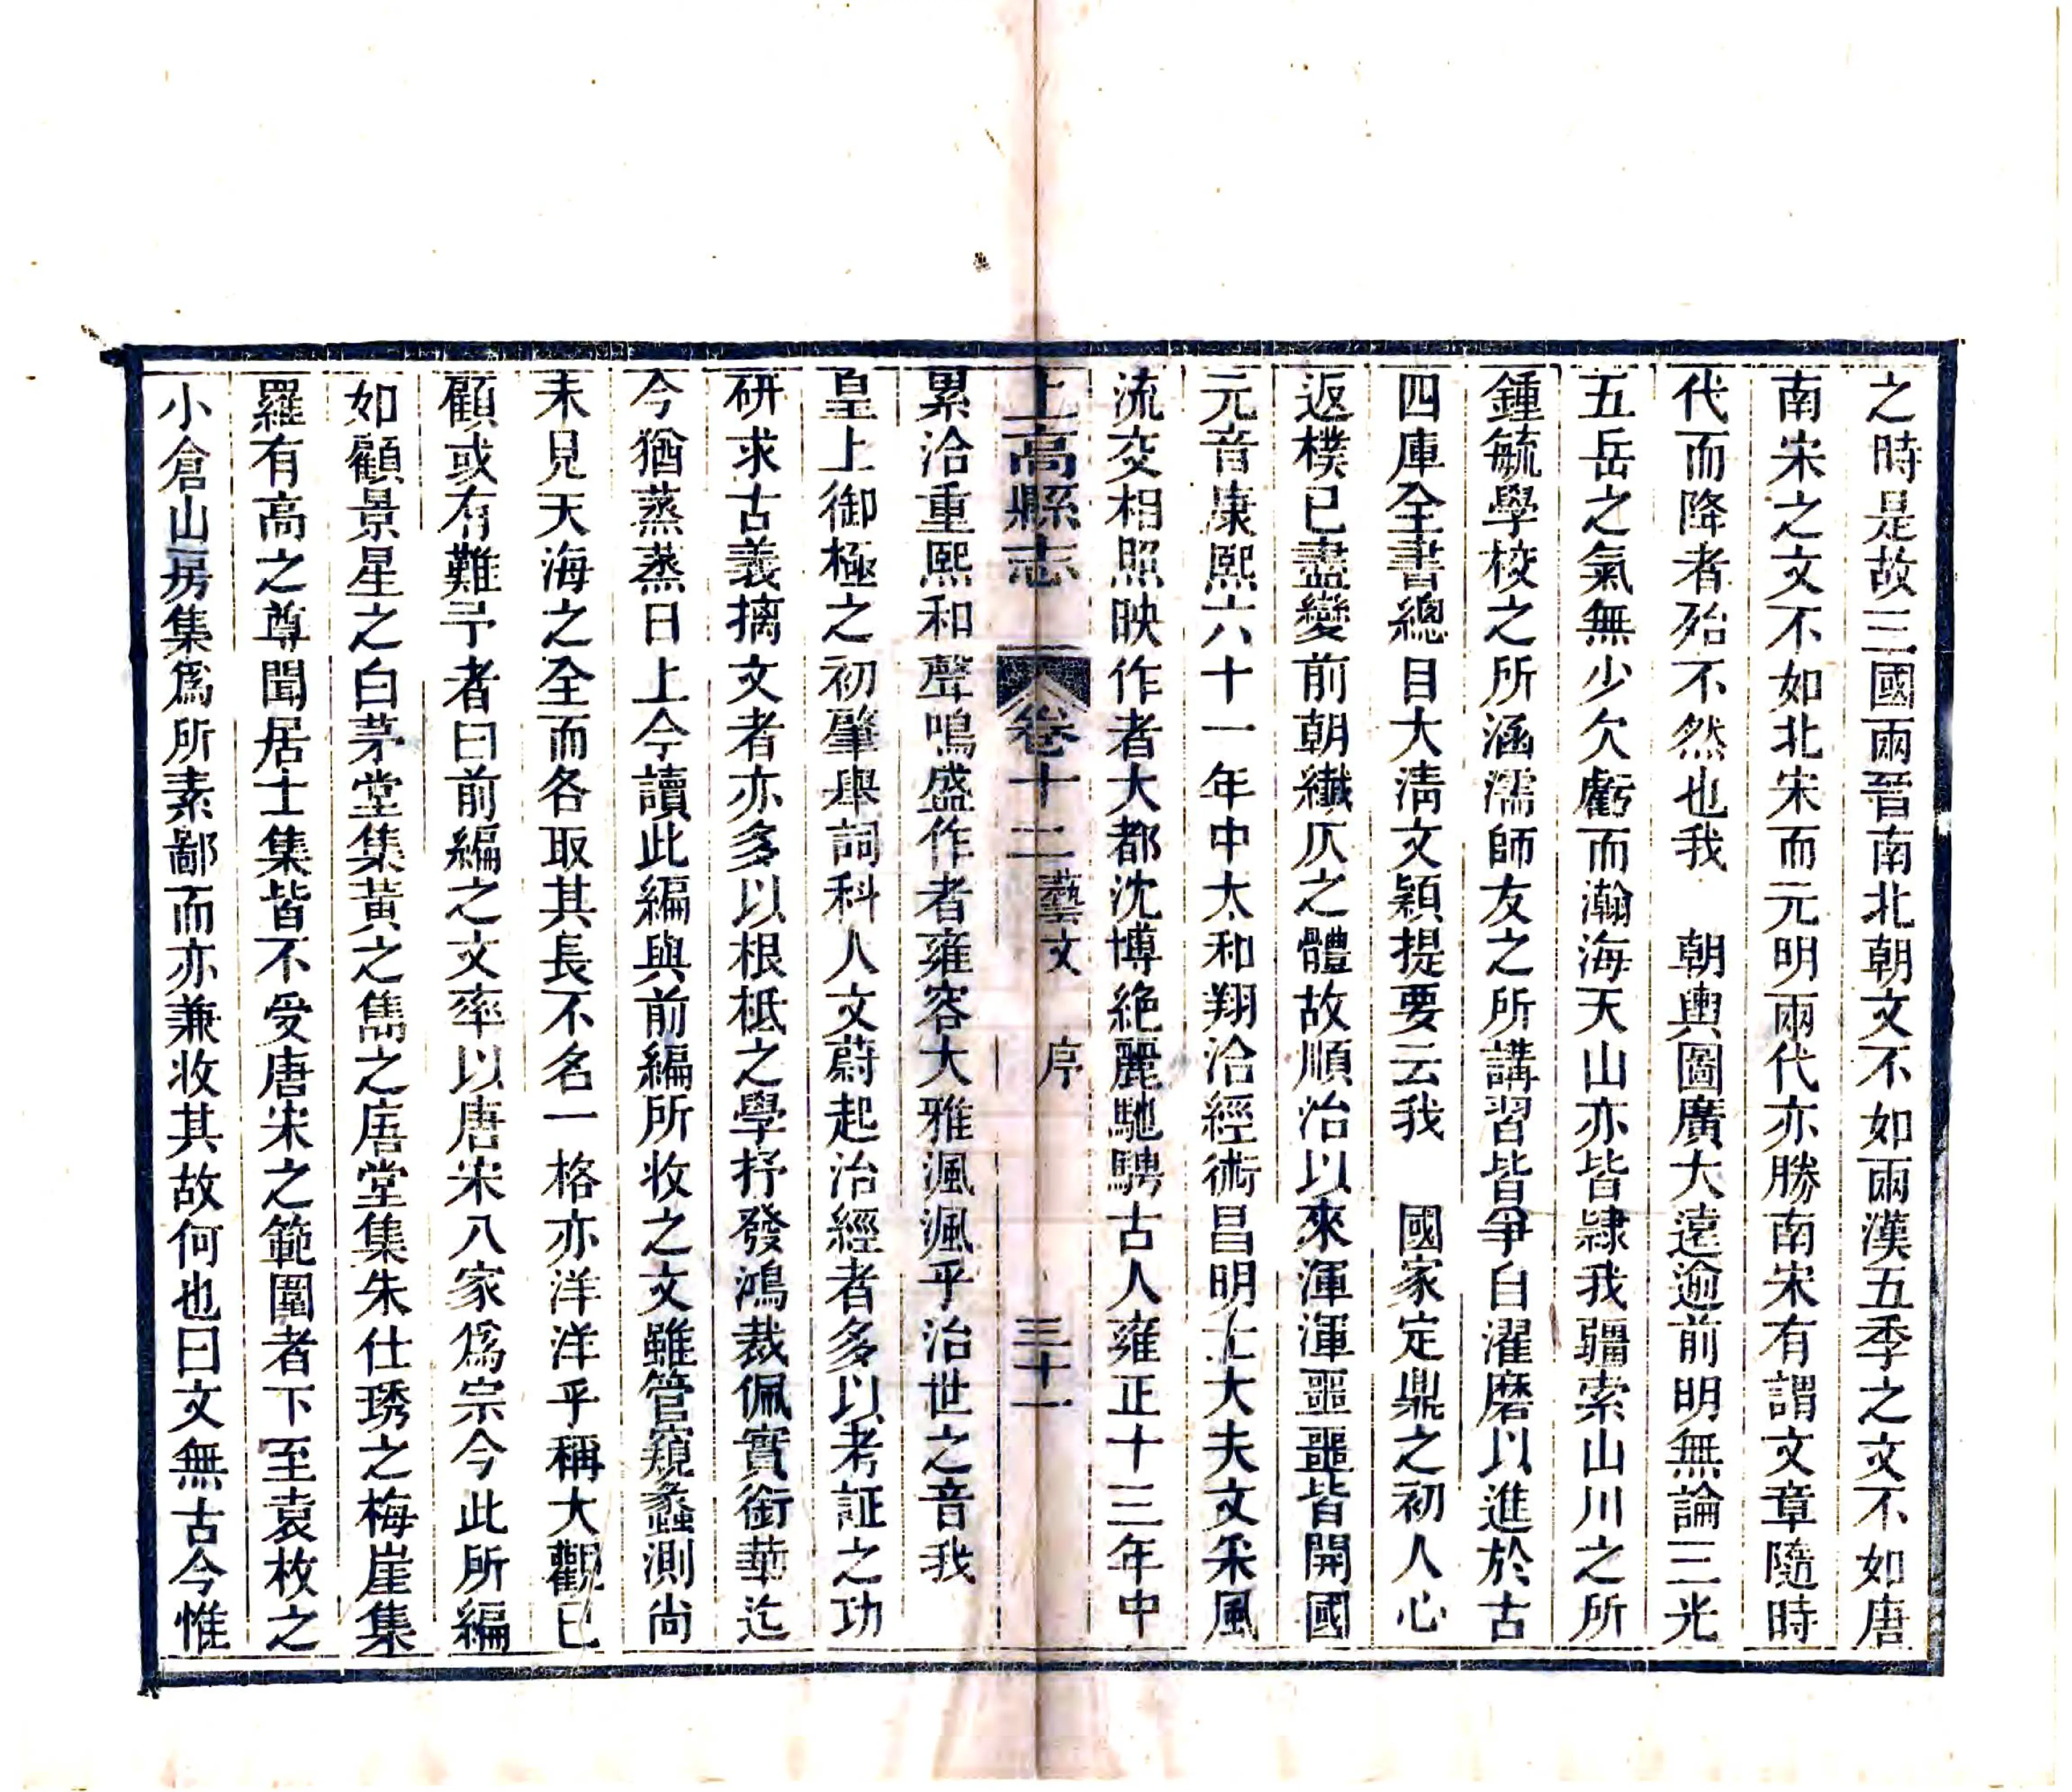 之時是故三國兩晉南北朝文不如兩漢五季之文不如唐
南宋之文不如北宋而元明兩代亦勝南宋有謂文章隨時
代而降者殆不然也我　朝輿圖廣大遠逾前明無論三光
五岳之氣無少欠虧而瀚海天山亦皆隸我疆索山川之所
鍾毓學校之所涵濡師友之所講習皆爭自濯磨以進於古
四庫全書總目大淸文穎提要云我　國家定鼎之初人心
返樸已盡變前朝纖仄之體故順治以來渾渾噩噩皆開國
元音康熙六十一年中太和翔洽經術昌明士大夫文采風
流交相照映作者大都沈博絶麗馳騁古人雍正十三年中
上高縣志　卷十二藝文　序　三十一
累洽重熙和聲鳴盛作者雍容大雅渢渢乎治世之音我
皇上御極之初肇舉詞科人文蔚起治經者多以考証之功
研求古義摛文者亦多以根柢之學抒發鴻裁佩實銜華迄
今猶蒸蒸日上今讀此編與前編所收之文雖管窺蠡測尚
未見天海之全而各取其長不名一格亦洋洋乎稱大觀已
顧或有難予者曰前編之文率以唐宋八家爲宗今此所編
如顧景星之白茅堂集黃之雋之㾿堂集朱仕琇之梅崖集
羅有高之尊聞居士集皆不受唐宋之範圍者下至袁枚之
小倉山房集爲所素鄙而亦兼收其故何也曰文無古今惟